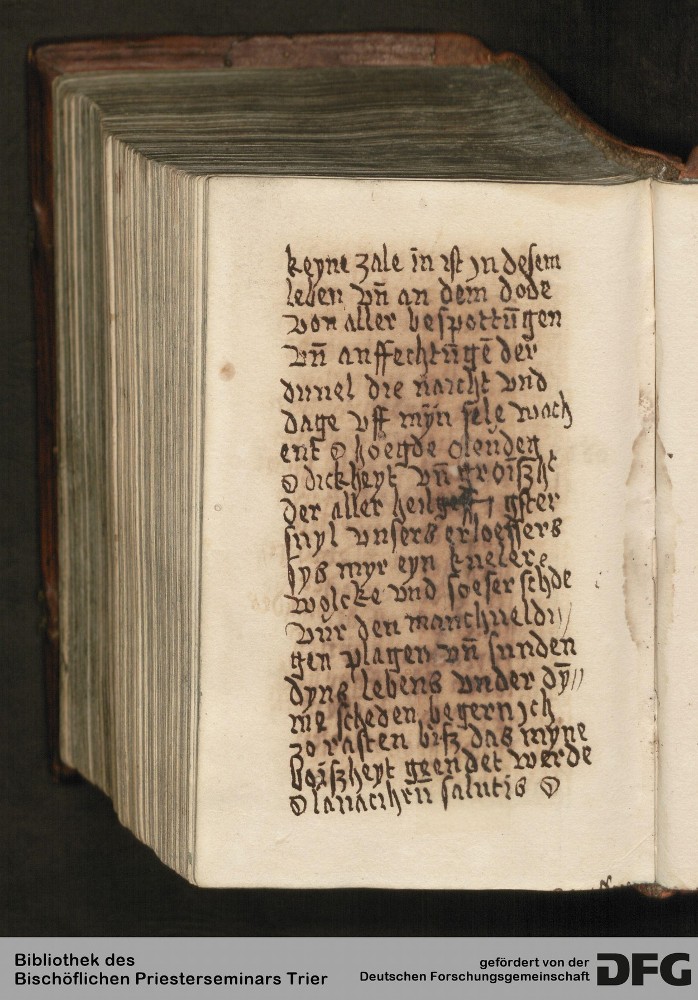 keyne zale in̄ ist jn desem
leben vn̄ an dem dode
von aller bespottūgen
vn̄ anffechtūgē der
duuel die naicht vnd
dage vff myn sele wach
ent O hoegde
O dickheyt vn̄ groiszht
der aller heil gster
suyl vnsers erloessers
sys myr eyn
wolcke vnd soeser schde
vur den manchueldi//
gen plagen vn̄ sunden
dyns lebens vnder dȳ//
me scheden begern jch
zo rasten bisz das myne
boiszheyt geendet werde
O salutis O
Bibliothek des
Bischöflichen Priesterseminars Trier
gefördert von der
Deutschen Forschungsgemeinschaft
DFG